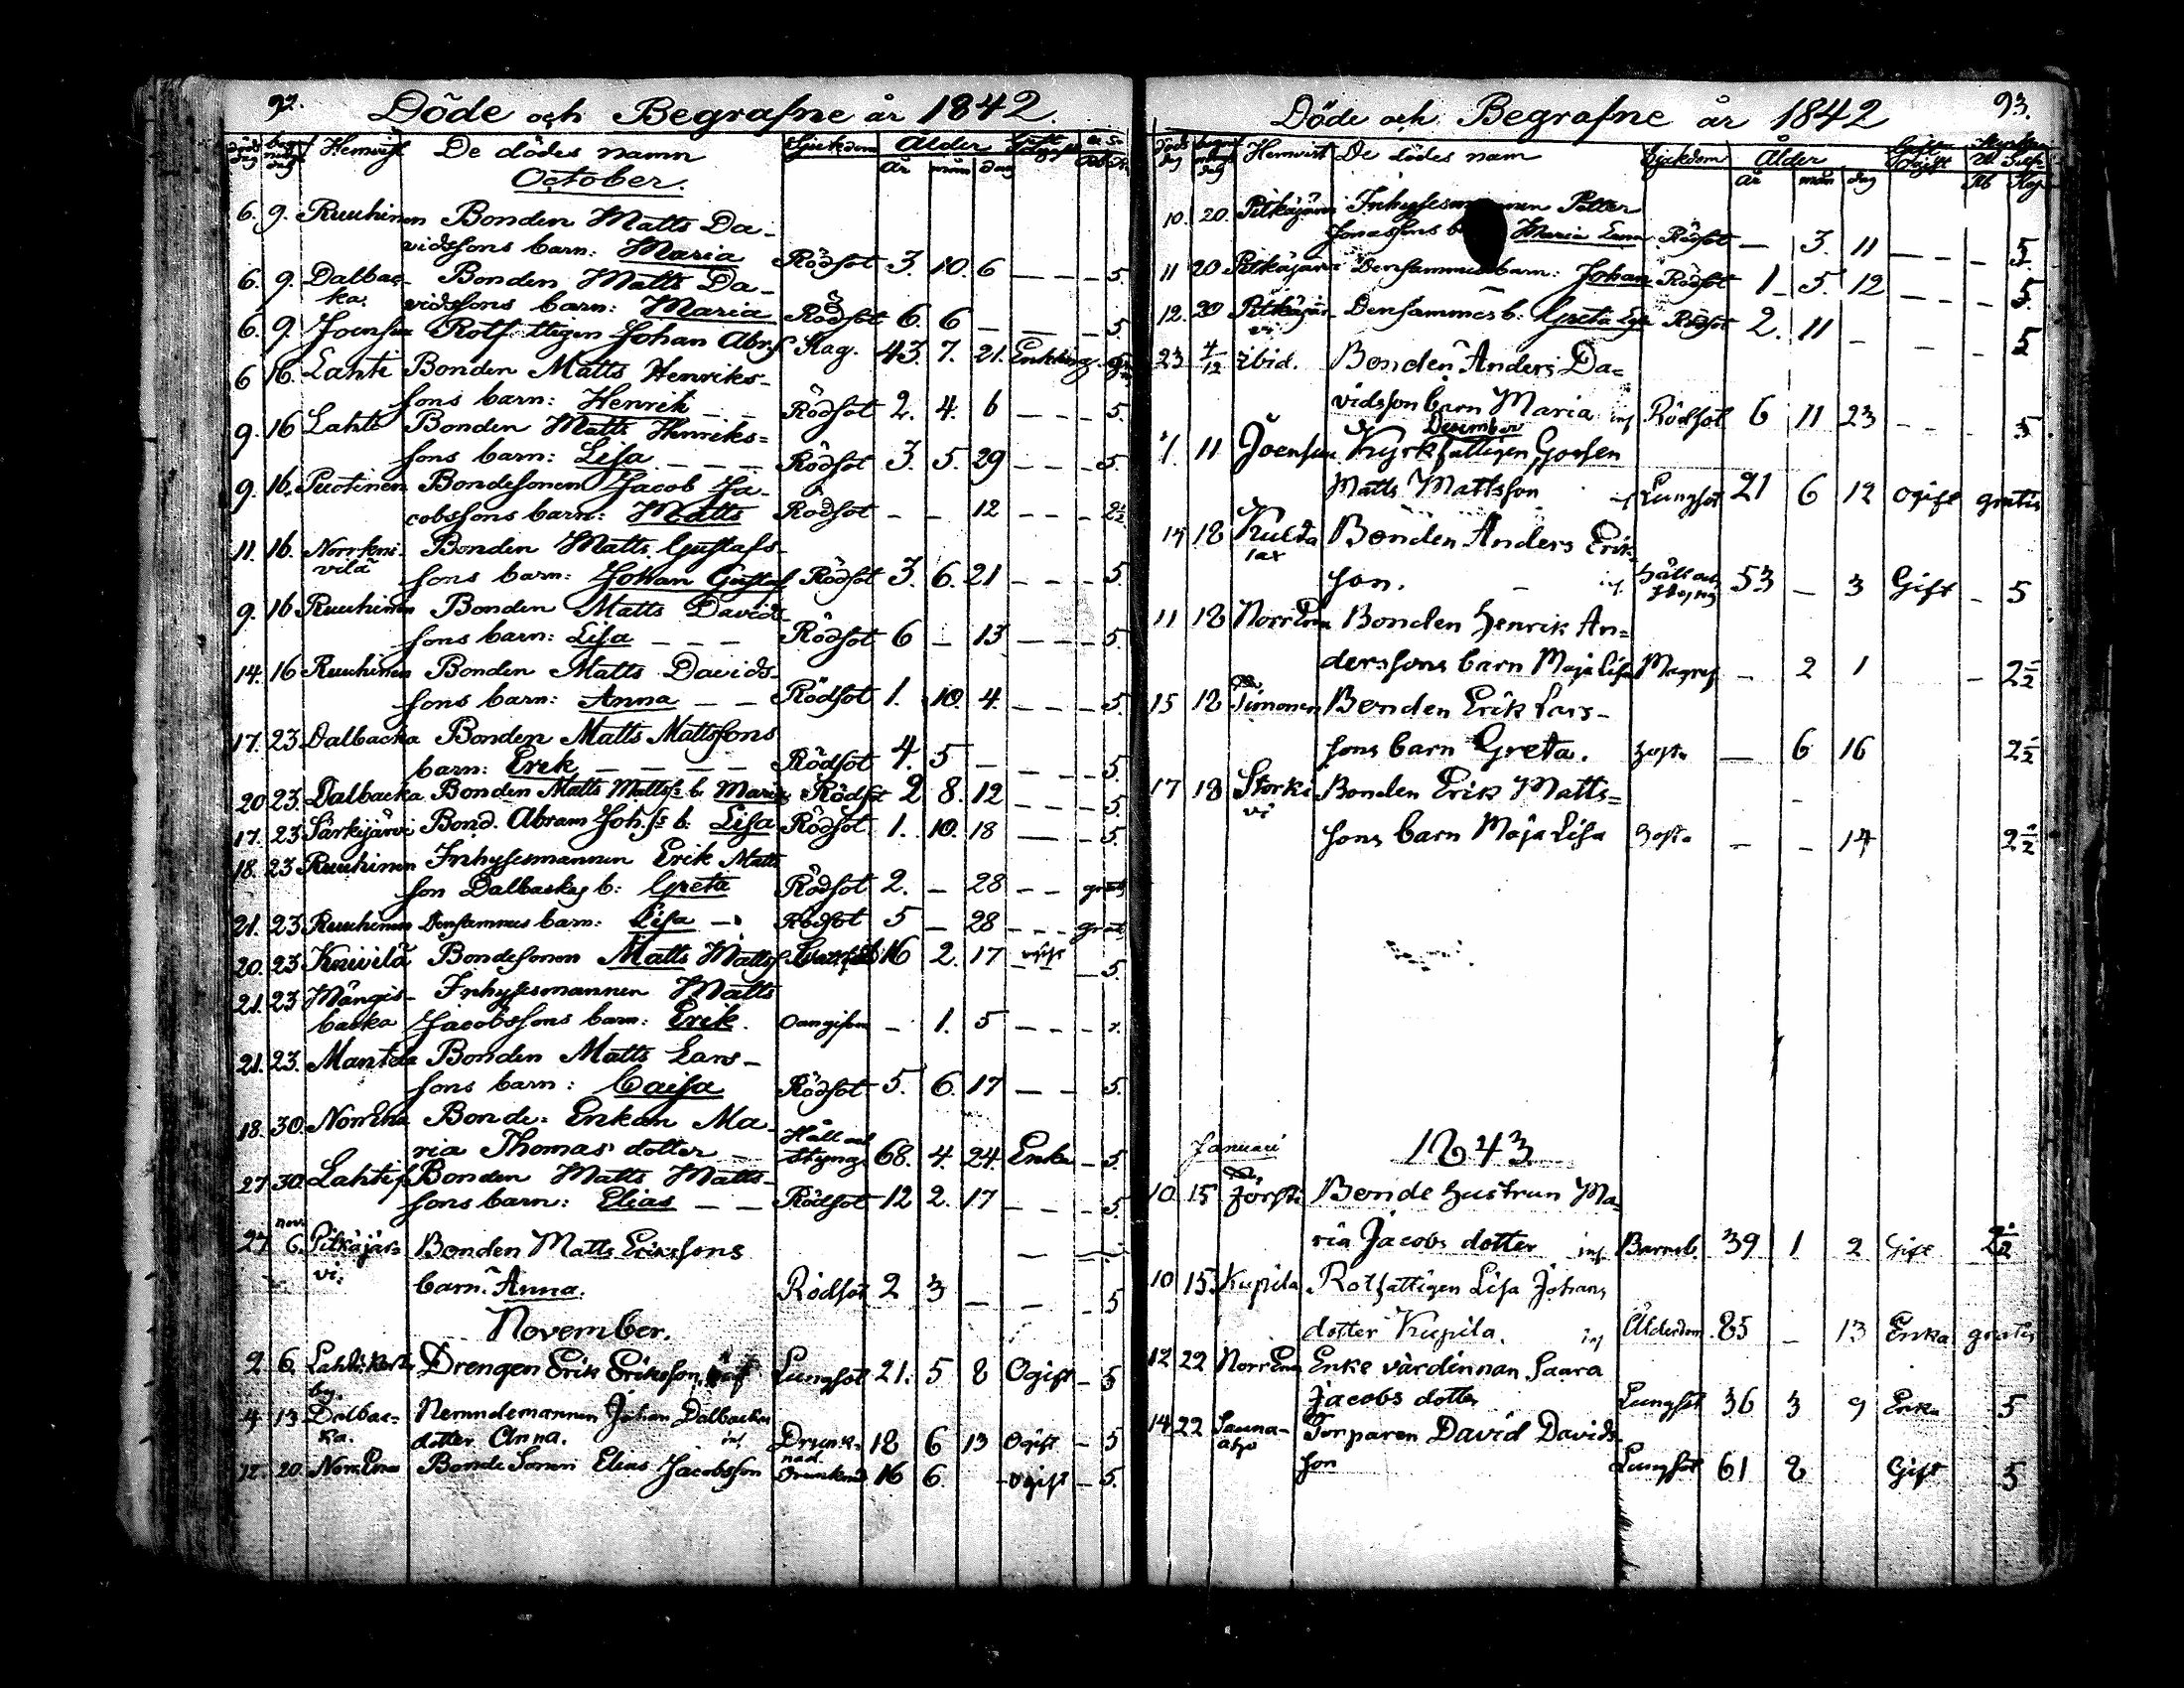 92.
Döde och Begrafne år 1842.
döds dag begrafnings dag Hemvist De dödes namn Sjukdom Ålder
år mån dag
October.
6. 9. Ruuhinen Bonden Matts Da-
vidssons barn: Maria Rödsot 3. 10. 6 — — - 5.
6. 9. Dalbac- Bonden Matts Da-
ka. vidssons barn: Maria Rödsot 6. 6 — — - 5
6. 9. Joensuu Rotf.ttigen Johan Abrs Slag. 43. 7. 21. Enkling.
6 16. Lahti Bonden Matts Henriks-
sons barn: Henrik — — Rödsot 2. 4. 6 — - - 5.
9. 16 Lahti Bonden Matts Henriks=
sons barn: Lisa — — — Rödsot 3. 5. 29 — - - 5.
9. 16. Puotinen Bondesonen Jacob Ja-
cobssons barn: Matts Rödsot - - 12 — - - 2½
11. 16. Norrkni- Bonden Matts Gustafs-
vilä sons barn: Johan Gustaf Rödsot 3. 6. 21 — - - 5.
9. 16 Ruuhinen Bonden Matts Davids-
sons barn: Lisa — — — Rödsot 6 — 13 — - - 5.
14. 16 Ruuhinen Bonden Matts Davids-
sons barn: Anna — — Rödsot 1. 10. 4. — - - 5.
17. 23. Dalbacka Bonden Matts Mattssons
barn: Erik — — — — Rödsot 4. 5 — — - 5.
20. 23. Dalbacka Bonden Matts Matts: b. Maria Rödsot 2 8. 12 — - - 5.
17. 23 Särkijärvi Bond. Abram Joh.ss b: Lisa Rödsot 1. 10. 18 — - 5.
18. 23 Ruuhinen Inhysesmannen Erik Matts
son Dalbackas b: Greta Rödsot 2. — 28 — - grat
21. 23 Ruuhinen Densammes barn: Lisa — Rödsot 5 — 28 — - - grat
20. 23 Knivilä Bondesonen Matts Matts 16 2. 17 ogift — 5.
21. 23 Mångis- Inhysesmannen Matts
backa Jacobssons barn: Erik. Oangifven — 1. 5 — - -
21. 23. Mantela Bonden Matts Lars-
sons barn: Caisa Rödsot 5. 6. 17 — — 5.
18. 30. NorrEna Bonde= Enkan Ma-
ria Thomas dotter — Håll och Styng. 68. 4. 24. Enka — 5.
27 30. Lahti Bonden Matts Matts-
sons barn: Elias — — Rödsot 12 2. 17 — - - 5.
nov.
27 6. Pitkäjär= Bonden Matts Erikssons
vi. barn. Anna. Rödsot 2 3 — — 5
November.
2 6. Drengen Erik Eriksson Lungsot 21. 5 8 Ogift — 5
by.
4 13 Dalbac= Nemndemannen Johan Dalbackas
ka. dotter Anna. Drunk- nad. 18 6 13 Ogift — 5
12. 20. NorrEna Bonde Sonen Elias Jacobsson Drunknad 16 6. — Ogift — 5.
93.
Döde och Begrafne år 1842
döds dag Hemvist De dödes nam Sjukdom Ålder
år mån dag Rb Kop
10. 20. Pitkäjärvi Petter
Jonassons Maria Rödsot — 3. 11 — - - 5
11 20 Pitkäjärvi Densammes barn: Johan Rödsot 1 5. 12 — - - 5.
12. 20 Pitkäjär- Densammes b: Greta Rödsot 2. 11 — — 5
vi
23 4/12 ibid. Bonden Anders Da=
vidsson barn Maria Rödsot 6 11 23 — - - 5
December
7. 11 Joensuu Kyrkfattigen Gossen
Matts Mattsson Lungsot 21 6 12 ogift gratis
14 18 Bonden Anders Erik
son. Håll och Styng 53 — 3 Gift — 5
11 18 NorrEna Bonden Henrik An=
derssons barn Maja Lisa — 2 1 — 2½
15 18 Timonen Bonden Erik Lars-
sons barn Greta. host. — 6 16 2½
17 18 Storki Bonden Erik Matts=
vi sons barn Maja Lisa host. — — 14 2½
Januari 1843
10 15 Bonde hustrun Ma=
ria Jacobs dotter Barnsb. 39 1 2 Gift 2½
10 15. Kupila Rotfattigen Lisa Johans
dotter Kupila. Ålderdom. 85 — 13 Enka gratis
12 22 NorrEna Enke värdinnan Saara
Jacobs dotter Lungsot 36 3 9 Enka 5
14 22 Sauna- Torparen David Davids-
son Lungsot 61 2 Gift 5